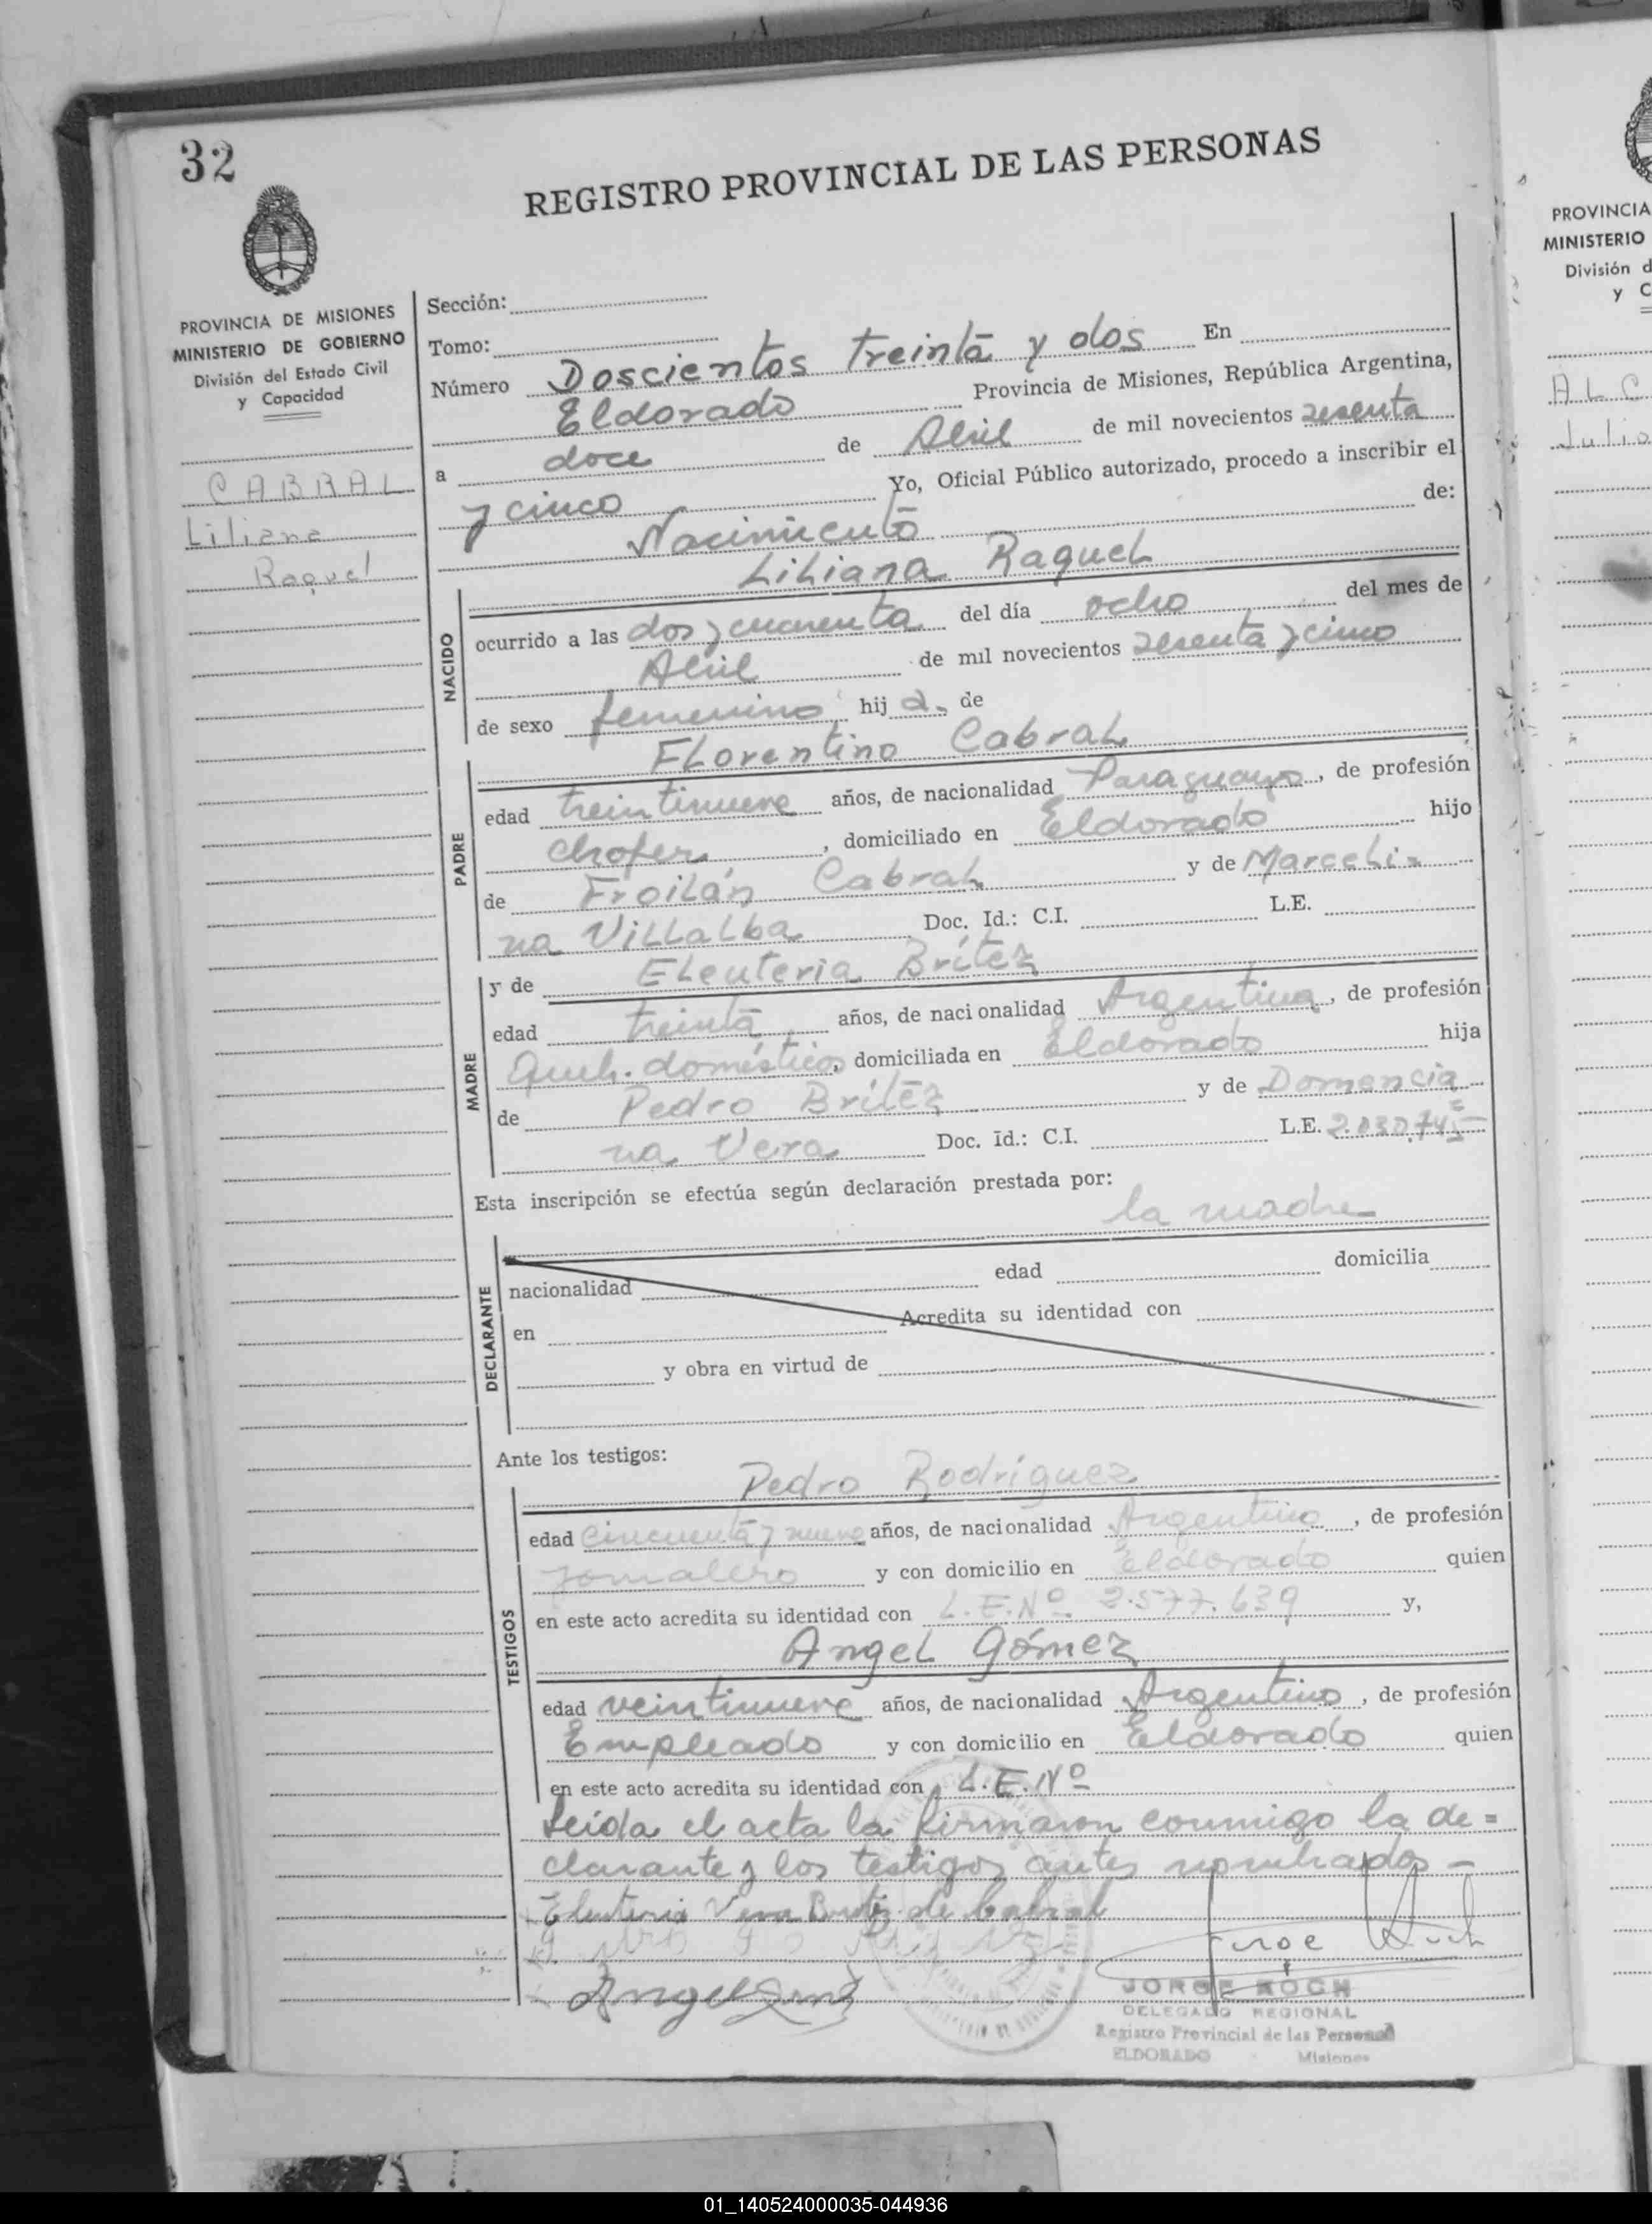 32
REGISTRO PROVINCIAL DE LAS PERSONAS
PROVINCIA DE MISIONES
MINISTERIO DE GOBIERNO
División del Estado Civil
y Capacidad
CABRAL
Liliana
Raquel
Sección:
Tomo:
Número Doscientos treinta y dos En
Eldorado Provincia de Misiones, República Argentina,
a doce de Abril de mil novecientos sesenta
y cinco Yo, Oficial Público autorizado, procedo a inscribir el
Nacimiento de:
Liliana Raquel
NACIDO
ocurrido a las dos y cuarenta del día ocho del mes de
Abril de mil novecientos sesenta y cinco
de sexo femenino hij a. de
Florentino Cabral
PADRE
edad treintinueve años, de nacionalidad Paraguayo, de profesión
chofer, domiciliado en Eldorado hijo
de Froilán Cabral y de Marceli=
na Villalba Doc. Id.: C.I. L.E.
y de Eleuteria Brítez
MADRE
edad treinta años, de nacionalidad Argentina, de profesión
Queh. domésticos, domiciliada en Eldorado hija
de Pedro Brítez y de Domencia=
na Vera Doc. Id.: C.I. L.E. 2.030.745
Esta inscripción se efectúa según declaración prestada por:
la madre
DECLARANTE
nacionalidad edad domicilia
en Acredita su identidad con
y obra en virtud de
Ante los testigos:
Pedro Rodríguez
TESTIGOS
edad cincuenta y nueve años, de nacionalidad Argentino, de profesión
jornalero y con domicilio en Eldorado quien
en este acto acredita su identidad con L.E.Nº 2.577.639 y,
Angel Gómez
edad veintinueve años, de nacionalidad Argentino, de profesión
Empleado y con domicilio en Eldorado quien
en este acto acredita su identidad con L.E.Nº
Leída el acta la firmaron conmigo la de=
clarante y los testigos antes nombrados -
Eleuteria Vera Britez de Cabral
JORGE KOCH
DELEGADO REGIONAL
Registro Provincial de las Personas
ELDORADO Misiones
PROVINCIA
MINISTERIO
División d
y C
ALC
Julio
01_140524000035-044936